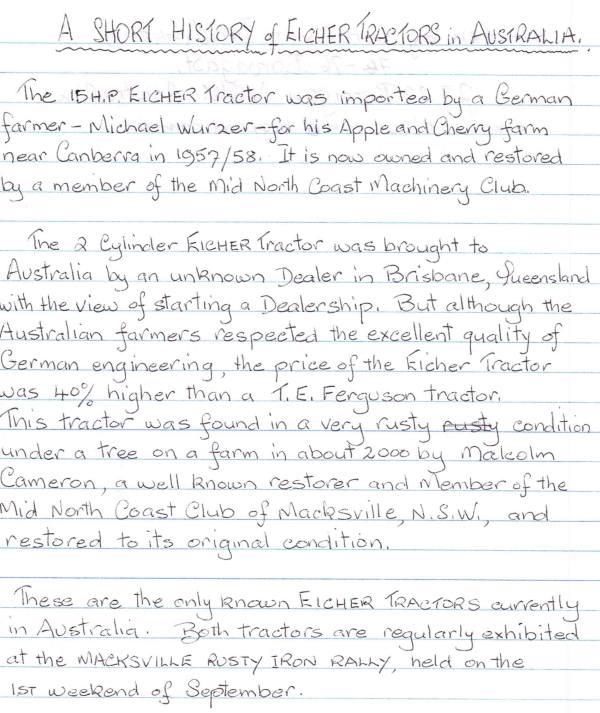 A SHORT HISTORY of EICHER TRACTORS in AUSTRALIA.
The 15H.P. EICHER Tractor was imported by a German
farmer - Michael Wurzer - for his Apple and Cherry farm
near Canberra in 1957/58. It is now owned and restored
by a member of the Mid North Coast Machinery Club.
The 2 Cylinder EICHER Tractor was brought to
Australia by an unknown Dealer in Brisbane, Queensland
with the view of starting a Dealership. But although the
Australian farmers respected the excellent quality of
German engineering, the price of the Eicher Tractor
was 40% higher than a T.E. Ferguson tractor.
This tractor was found in a very rusty rusty condition
under a tree on a farm in about 2000 by Malcolm
Cameron, a well known restorer and Member of the
Mid North Coast Club of Macksville, N.S.W., and
restored to its original condition.
These are the only known EICHER TRACTORS currently
in Australia. Both tractors are regularly exhibited
at the MACKSVILLE RUSTY IRON RALLY, held on the
1ST weekend of September.